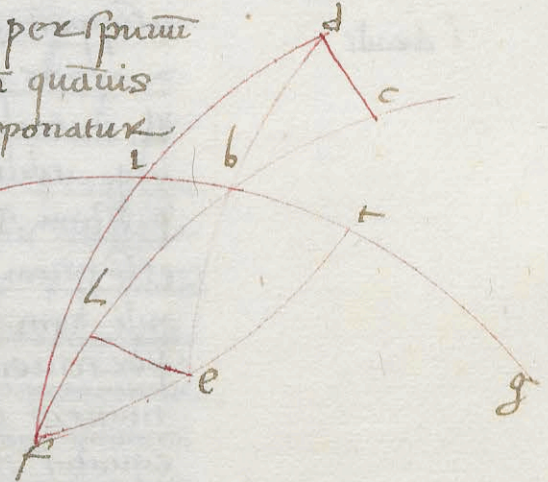 per spiuiu
quāuis
ponatur
d
c
1
b
r
L
e
g
F